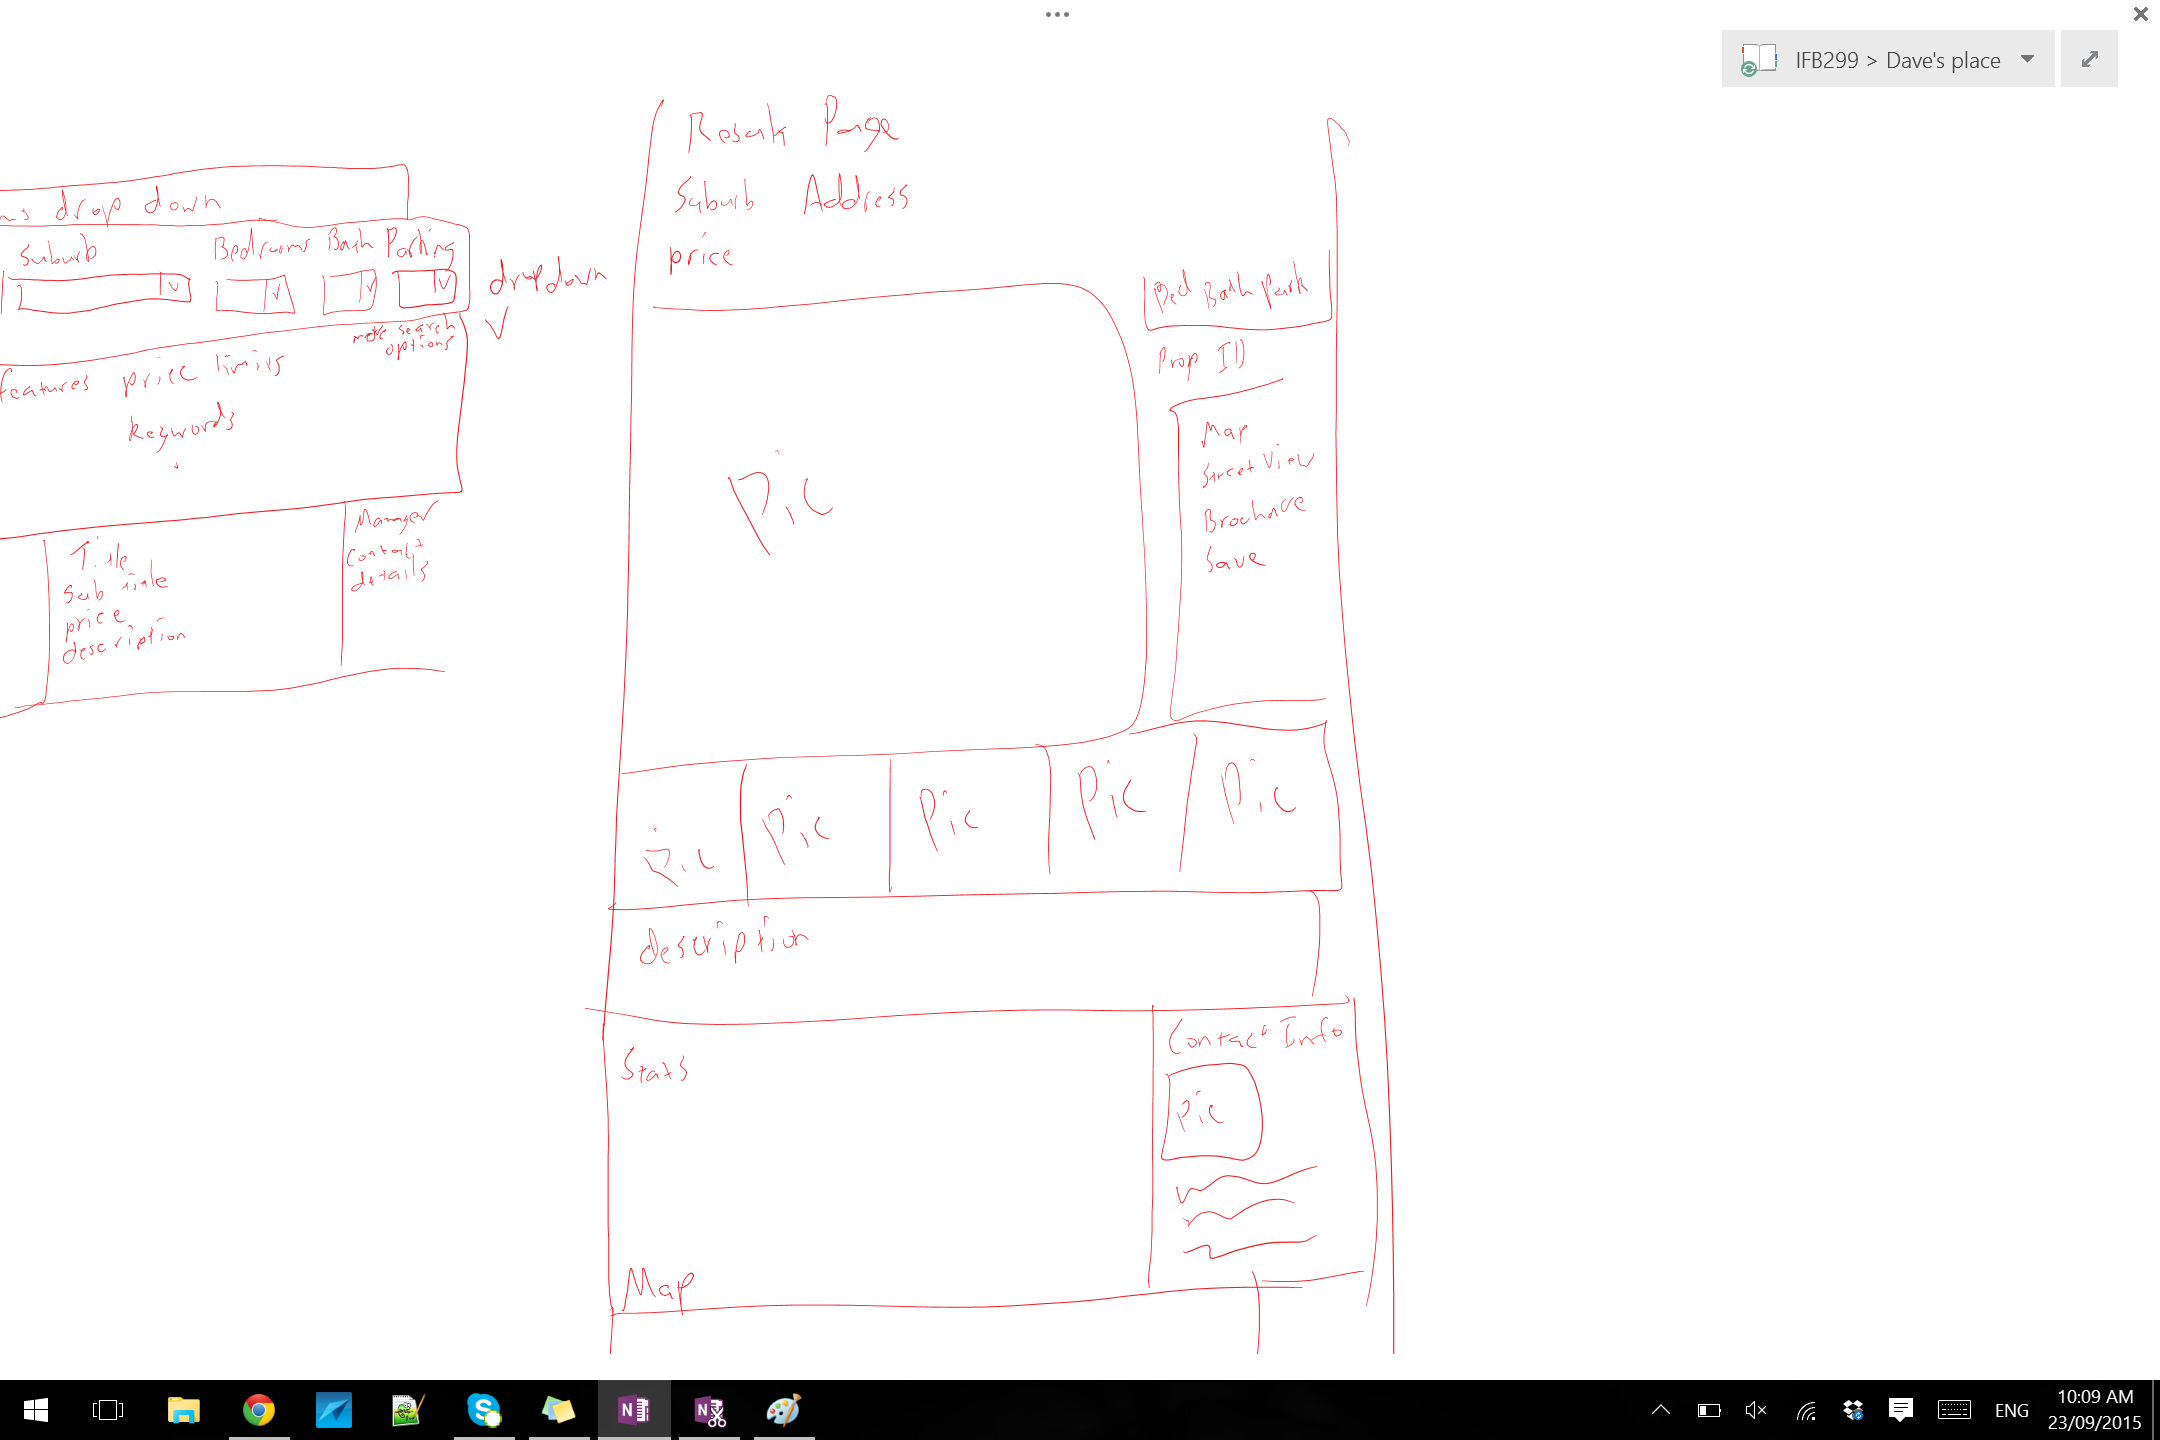 IFB299 > Dave's place
drop down
Suburb Bedrooms Bath Parking
dropdown
more search
options
features price limits
keywords
Title
Sub title
price
description
Manager
contact
details
Result Page
Suburb Address
price
Bed Bath Park
Prop ID
Map
Street View
Brochure
Save
Pic
Pic Pic Pic Pic Pic
description
Stats
Contact Info
Pic
Map
ENG
10:09 AM
23/09/2015